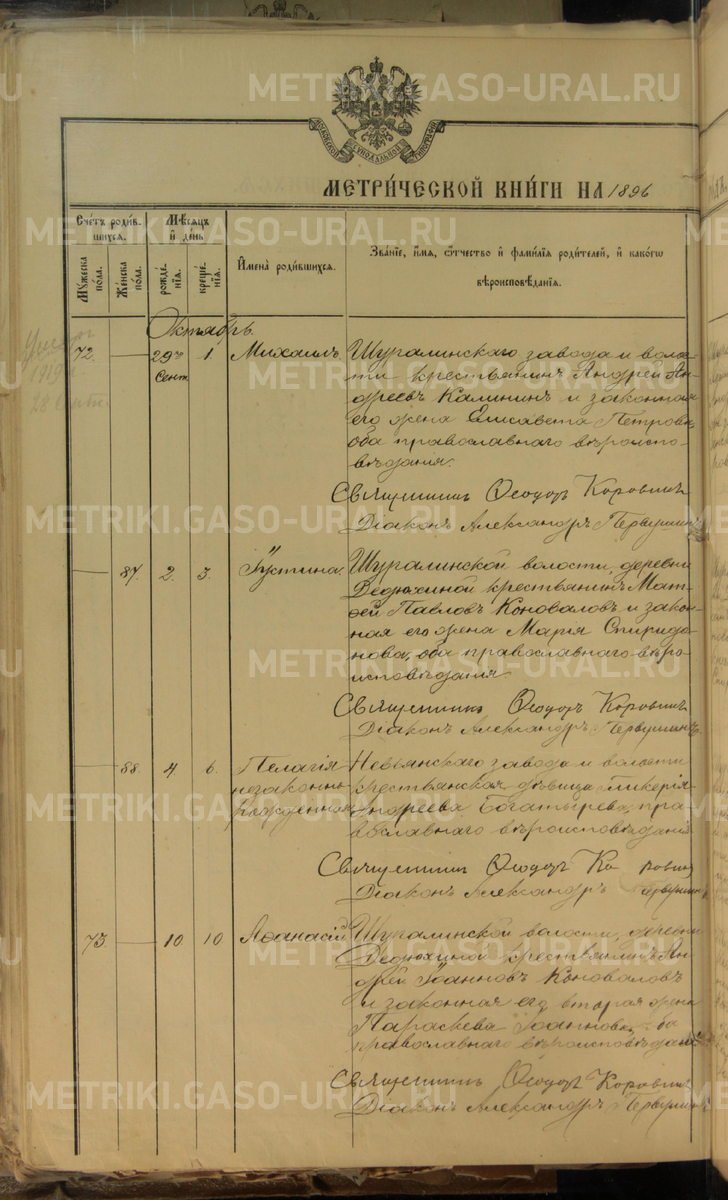 МОСКОВСКОЙ СѴНОДАЛЬНОЙ ТИПОГРАФІИ
МЕТРИ́ЧЕСКОЙ КНИ́ГИ НА 1896
Сче́тъ роди́в-
шихся.
Мѣ́сяцъ
и҆ де́нь
И҆мена̀ роди́вшихся.
Зва́нїе, и҆́мя, ѻ҆́тчество и҆ фами́лїя роди́телей, и҆ како́гѡ
вѣроисповѣ́данїя.
Мꙋ́жеска по́ла.
Же́нска по́ла.
рожде́нїя.
креще́нїя.
Октябрь
72. 29го Сент. 1 Михаилъ
Шуралинскаго завода и воло-
сти крестьянинъ Андрей Ан-
дреевъ Калининъ и законная
его жена Елисавета Петровна,
оба православнаго вѣроиспо-
вѣданія.
Священникъ Ѳеодоръ Коровинъ
Діаконъ Александръ Первушинъ
87. 2. 3. Іустина
Шуралинской волости, деревни
Ведюхиной крестьянинъ Мат-
ѳей Павловъ Коноваловъ и закон-
ная его жена Марія Спиридо-
нова, оба православнаго вѣро-
исповѣданія.
Священникъ Ѳеодоръ Коровинъ
Діаконъ Александръ Первушинъ
88. 4. 6. Пелагія
незаконно-
рожденная
Невьянскаго завода и волости
крестьянская дѣвица Гликерія
Андреева Богатырева, пра-
вославнаго вѣроисповѣданія
Священникъ Ѳеодоръ Коровинъ
Діаконъ Александръ Первушинъ
73 10 10 Аѳанасій
Шуралинской волости, деревни
Ведюхиной крестьянинъ Ан-
дрей Іоанновъ Коноваловъ
и законная его вторая жена
Параскева Іоаннова, оба
православнаго вѣроисповѣданія
Священникъ Ѳеодоръ Коровинъ
Діаконъ Александръ Первушинъ
METRIKI.GASO-URAL.RU